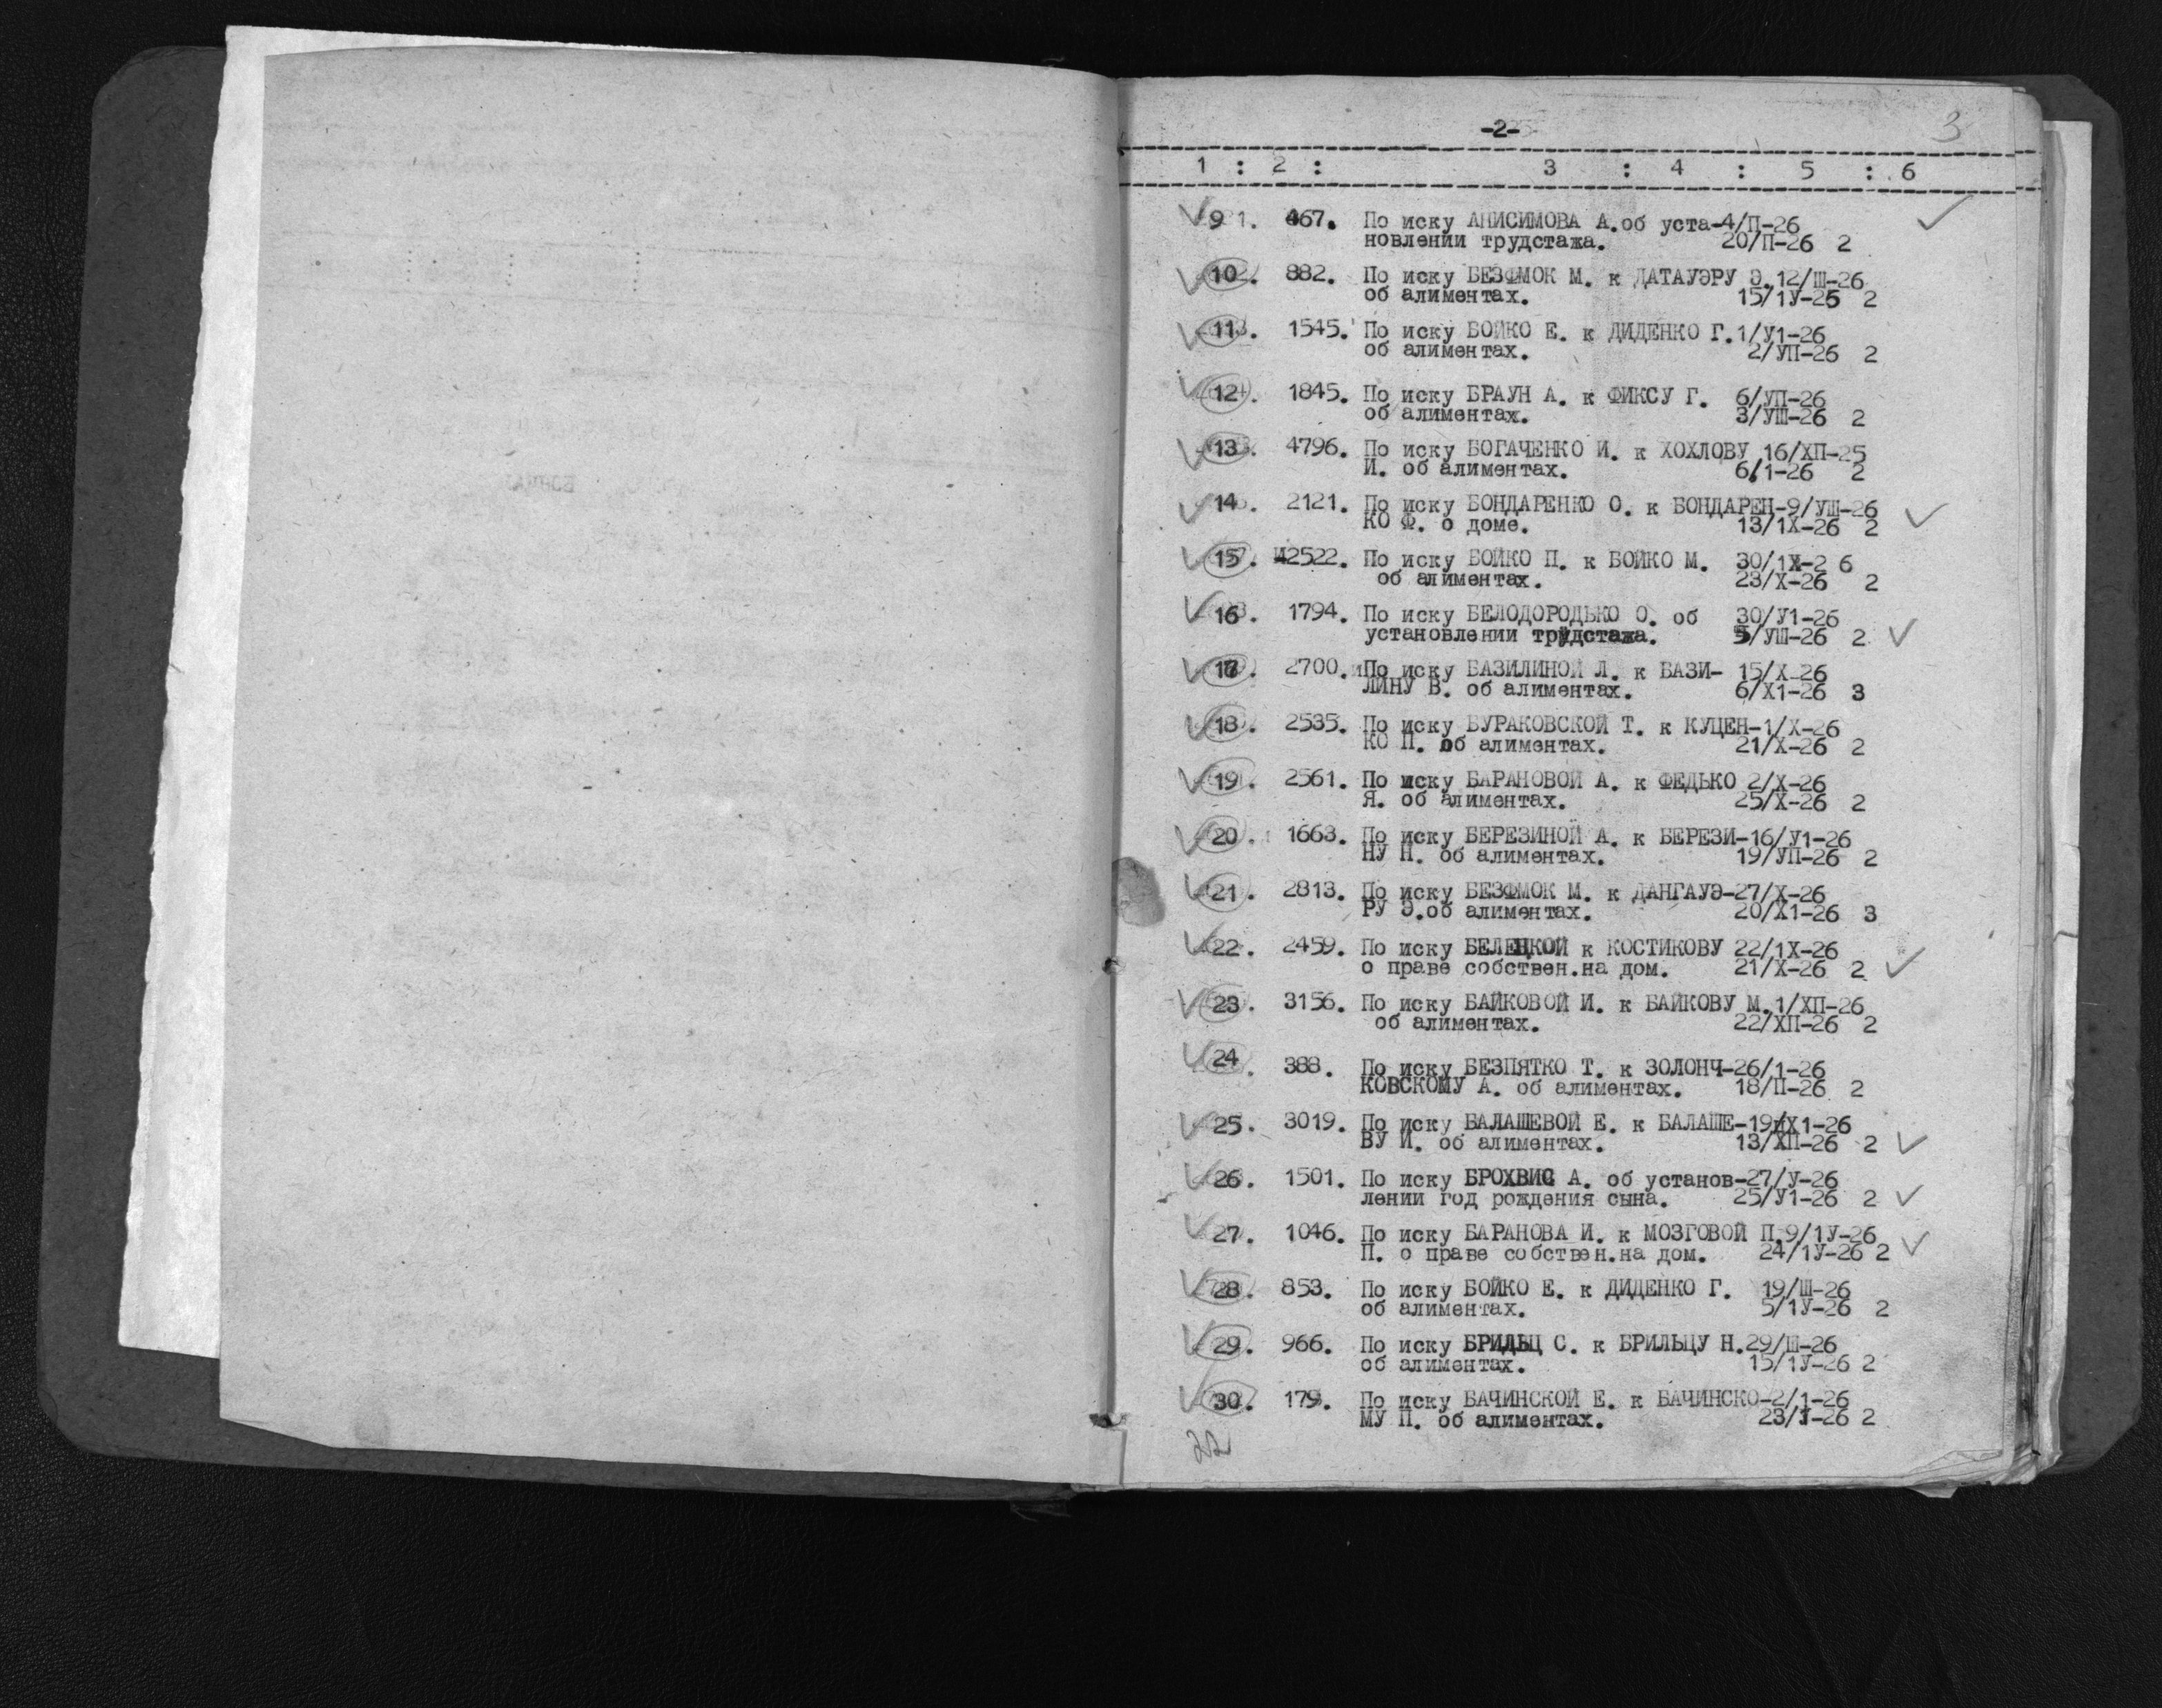 -2-
3
1 : 2 : 3 : 4 : 5 : 6
9. 467. По иску АНИСИМОВА А.об уста-4/П-26
новлении трудстажа. 20/П-26 2
10. 882. По иску БЕЗФМОК М. к ДАТАУЭРУ Э.12/Ш-26
об алиментах. 15/1У-26 2
11. 1545. По иску БОЙКО Е. к ДИДЕНКО Г.1/У1-26
об алиментах. 2/УП-26 2
12. 1845. По иску БРАУН А. к ФИКСУ Г. 6/УП-26
об алиментах. 3/УШ-26 2
13. 4796. По иску БОГАЧЕНКО И. к ХОХЛОВУ 16/ХП-25
И. об алиментах. 6/1-26 2
14. 2121. По иску БОНДАРЕНКО О. к БОНДАРЕН-9/УШ-26
КО Ф. о доме. 13/1Х-26 2
15. 2522. По иску БОЙКО П. к БОЙКО М. 30/1Х-2 6
об алиментах. 23/Х-26 2
16. 1794. По иску БЕЛОДОРОДЬКО О. об 30/У1-26
установлении трудстажа. 5/УШ-26 2
17. 2700. По иску БАЗИЛИНОЙ Л. к БАЗИ- 15/Х-26
ЛИНУ В. об алиментах. 6/Х1-26 3
18. 2535. По иску БУРАКОВСКОЙ Т. к КУЦЕН-1/Х-26
КО П. об алиментах. 21/Х-26 2
19. 2561. По иску БАРАНОВОЙ А. к ФЕДЬКО 2/Х-26
Я. об алиментах. 25/Х-26 2
20. 1663. По иску БЕРЕЗИНОЙ А. к БЕРЕЗИ-16/У1-26
НУ Н. об алиментах. 19/УП-26 2
21. 2813. По иску БЕЗФМОК М. к ДАНГАУЭ-27/Х-26
РУ Э.об алиментах. 20/Х1-26 3
22. 2459. По иску БЕЛЕЦКОЙ к КОСТИКОВУ 22/1Х-26
о праве собствен.на дом. 21/Х-26 2
23. 3156. По иску БАЙКОВОЙ И. к БАЙКОВУ М.1/ХП-26
об алиментах. 22/ХП-26 2
24. 388. По иску БЕЗПЯТКО Т. к ЗОЛОНЧ-26/1-26
КОВСКОМУ А. об алиментах. 18/П-26 2
25. 3019. По иску БАЛАШЕВОЙ Е. к БАЛАШЕ-19/Х1-26
ВУ И. об алиментах. 13/ХП-26 2
26. 1501. По иску БРОХВИС А. об установ-27/У-26
лении год рождения сына. 25/У1-26 2
27. 1046. По иску БАРАНОВА И. к МОЗГОВОЙ П.9/1У-26
П. о праве собствен.на дом. 24/1У-26 2
28. 853. По иску БОЙКО Е. к ДИДЕНКО Г. 19/Ш-26
об алиментах. 5/1У-26 2
29. 966. По иску БРИЛЬЦ С. к БРИЛЬЦУ Н.29/Ш-26
об алиментах. 15/1У-26 2
30. 179. По иску БАЧИНСКОЙ Е. к БАЧИНСКО-2/1-26
МУ П. об алиментах. 23/1-26 2